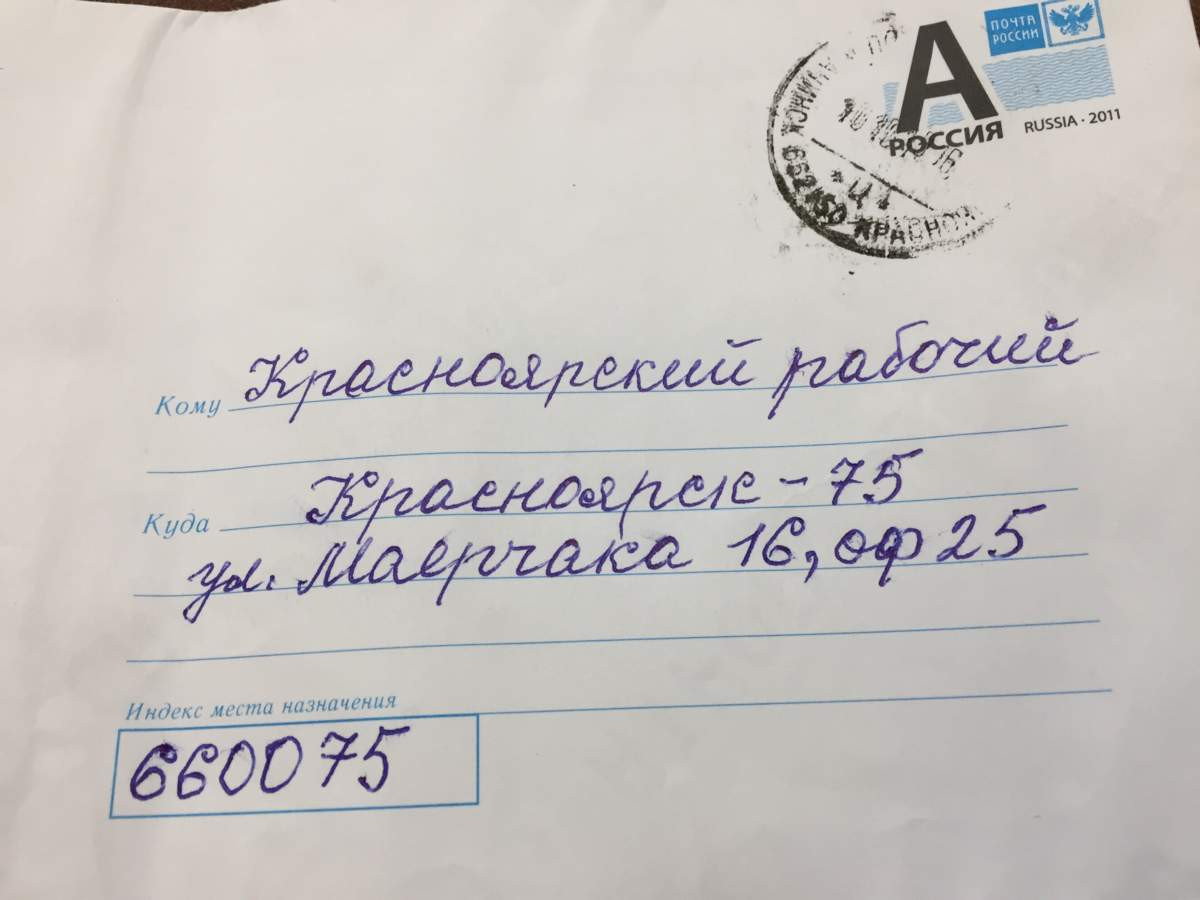 ПОЧТА
РОССИИ
А
РОССИЯ
RUSSIA · 2011
Кому Красноярский рабочий
Куда Красноярск - 75
ул. Маерчака 16, оф 25
Индекс места назначения
660075